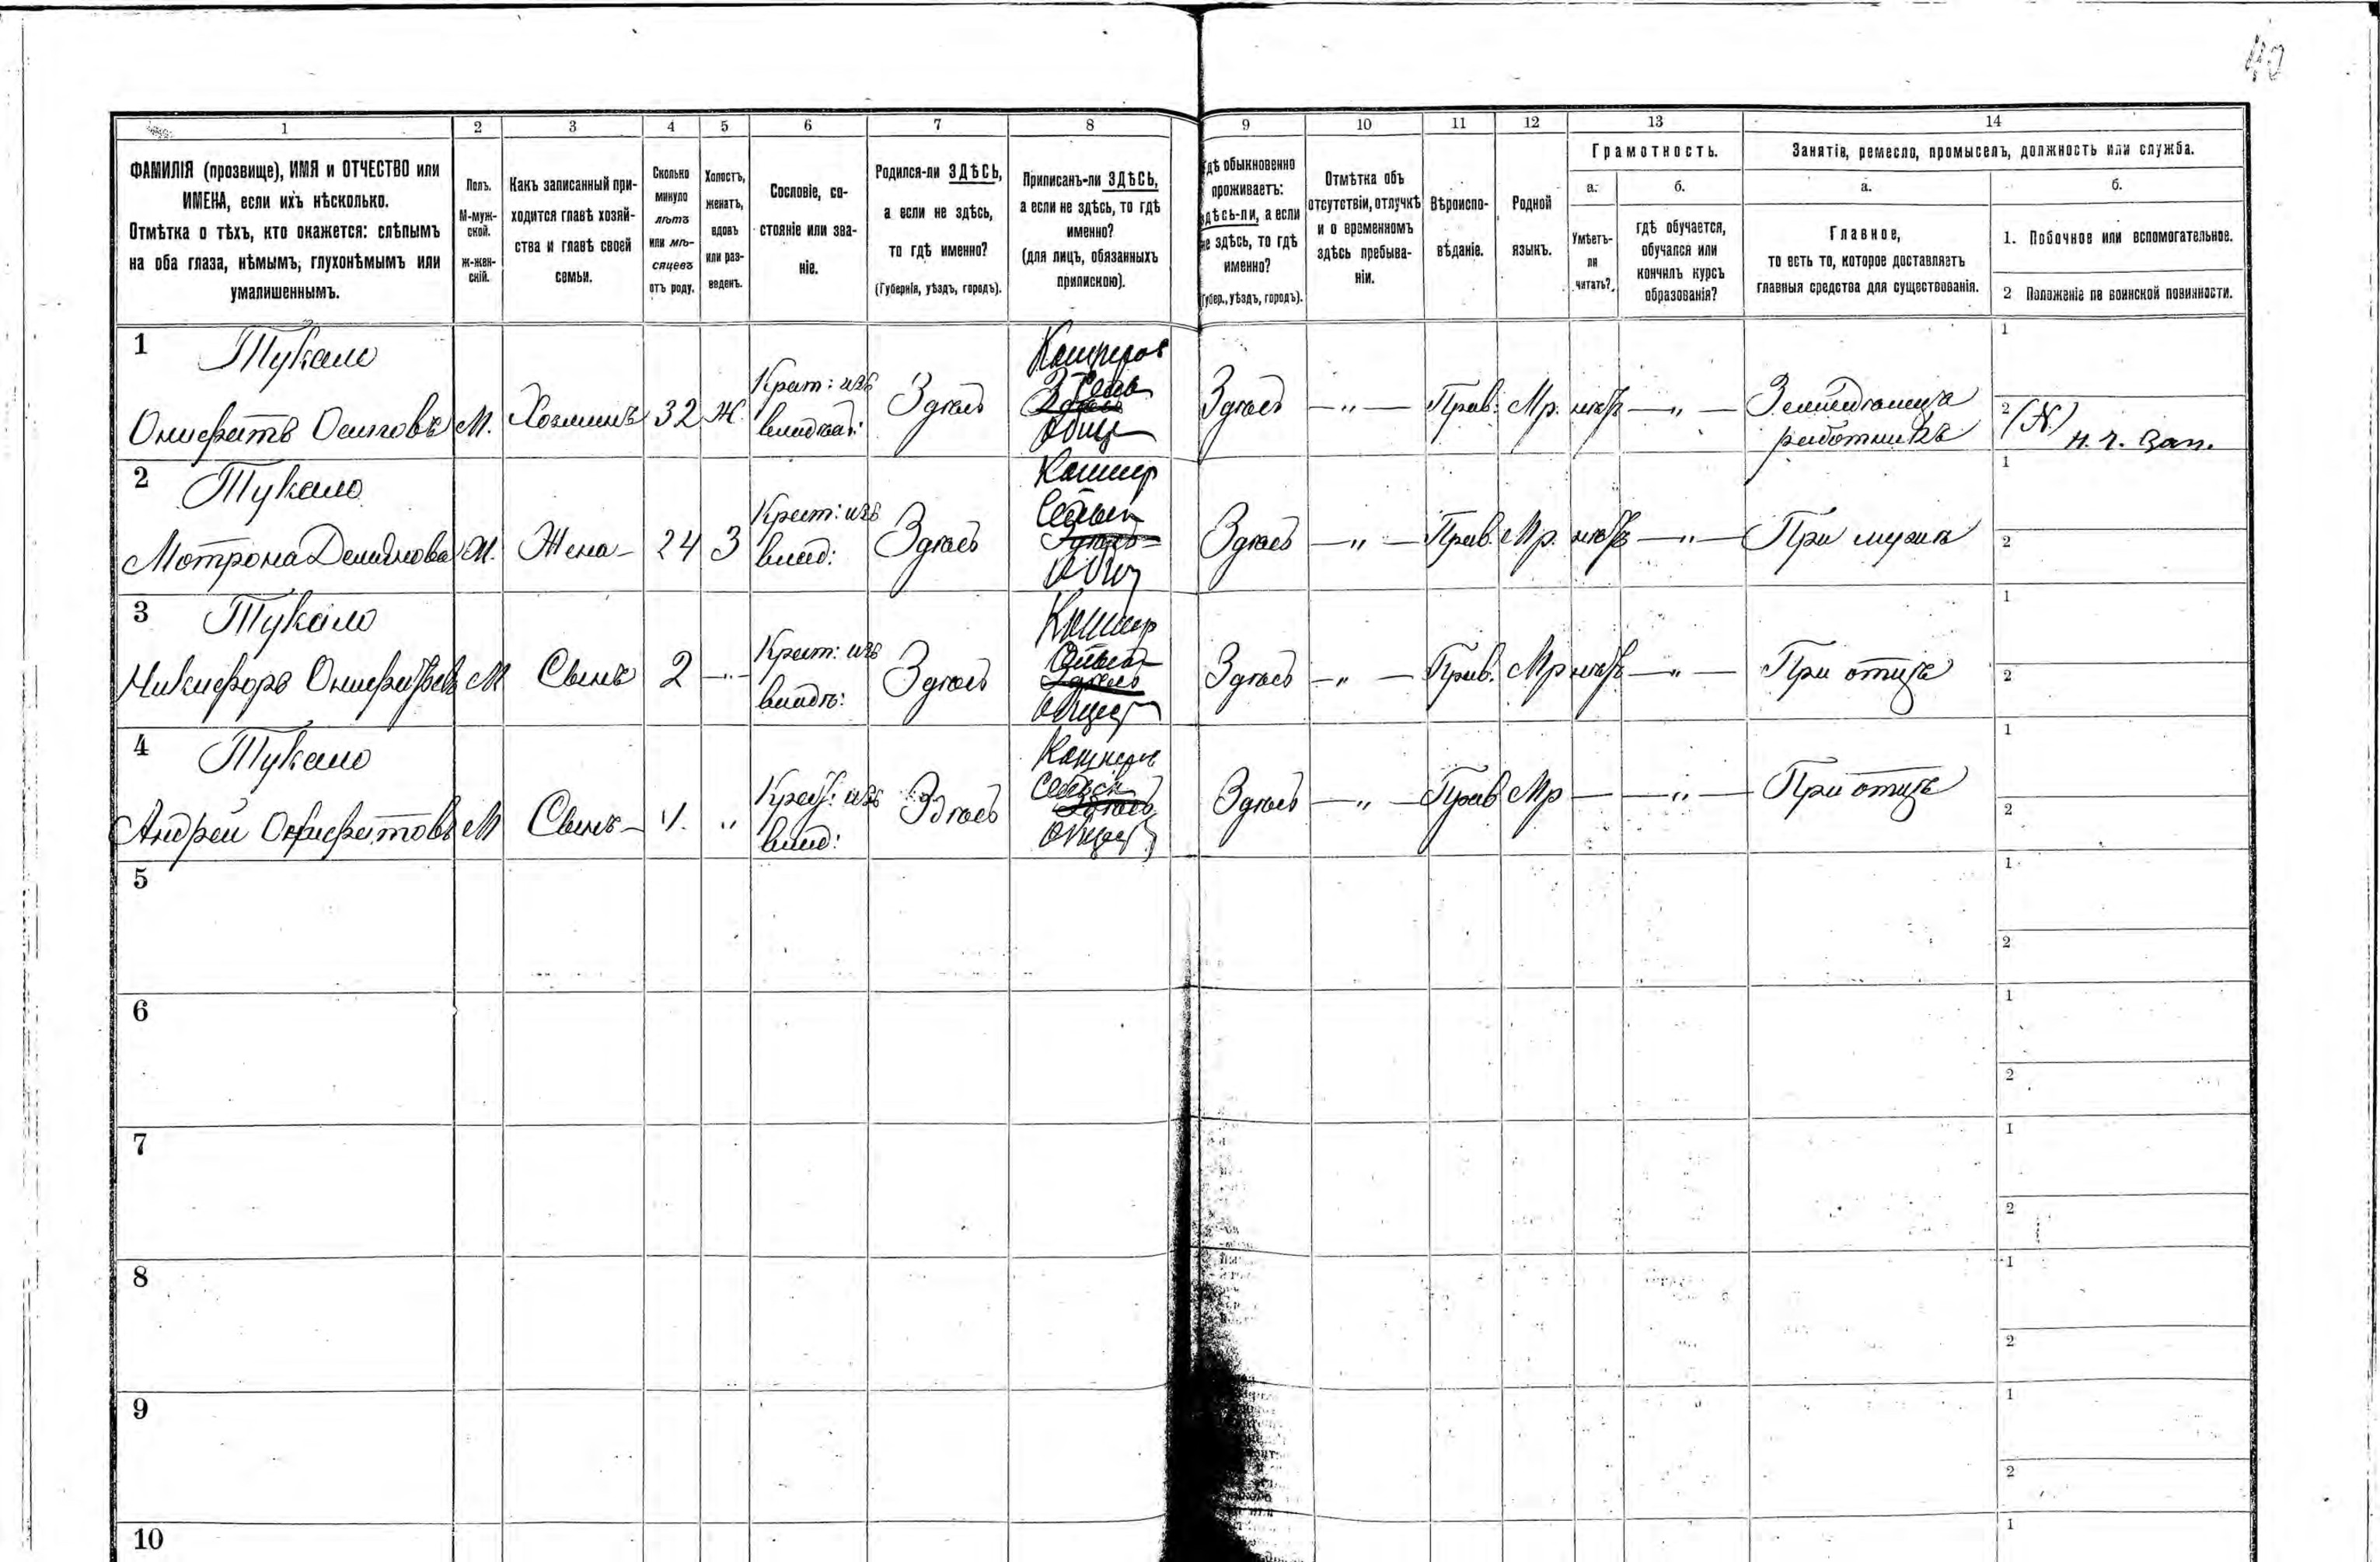 40
1 2 3 4 5 6 7 8 9 10 11 12 13 14
ФАМИЛІЯ (прозвище), ИМЯ и ОТЧЕСТВО или
ИМЕНА, если ихъ нѣсколько.
Отмѣтка о тѣхъ, кто окажется: слѣпымъ
на оба глаза, нѣмымъ, глухонѣмымъ или
умалишеннымъ.
Полъ.
М-муж-
ской.
Ж-жен-
скій.
Какъ записанный при-
ходится главѣ хозяй-
ства и главѣ своей
семьи.
Сколько
минуло
лѣтъ
или мѣ-
сяцевъ
отъ роду.
Холостъ,
женатъ,
вдовъ
или раз-
веденъ.
Сословіе, со-
стояніе или зва-
ніе.
Родился-ли ЗДѢСЬ,
а если не здѣсь,
то гдѣ именно?
(Губернія, уѣздъ, городъ).
Приписанъ-ли ЗДѢСЬ,
а если не здѣсь, то гдѣ
именно?
(для лицъ, обязанныхъ
припискою).
гдѣ обыкновенно
проживаетъ:
здѣсь-ли, а если
не здѣсь, то гдѣ
именно?
(Губер., уѣздъ, городъ).
Отмѣтка объ
отсутствіи, отлучкѣ
и о временномъ
здѣсь пребыва-
ніи.
Вѣроиспо-
вѣданіе.
Родной
языкъ.
Грамотность.
а.
Умѣетъ-
ли
читать?
б.
гдѣ обучается,
обучался или
кончилъ курсъ
образованія?
Занятія, ремесло, промыселъ, должность или служба.
а.
Главное,
то есть то, которое доставляетъ
главныя средства для существованія.
б.
1. Побочное или вспомогательное.
2 Положеніе по воинской повинности.
1 Тукало
Онисфатъ Осиповъ М. Хозяинъ 32 Ж. Крест: изъ
Здѣсь
Здѣсь — „ — Прав: Мр. нѣтъ — „ — Земледѣлецъ
работникъ
1
2 н. ч. зап.
2 Тукало
Мотрона Демидова Ж. Жена 24 З Крест: изъ
влад: Здѣсь
Здѣсь — „ — Прав. Мр. нѣтъ — „ — При мужѣ
1
2
3 Тукало
Никифоръ М Сынъ 2 — „ — Крест: изъ
Здѣсь
Здѣсь — „ — Прав. Мр нѣтъ — „ — При отцѣ
1
2
4 Тукало
Андрей М Сынъ „ Крест: изъ
влад: Здѣсь
Здѣсь — „ — Прав Мр — — „ — При отцѣ
1
2
5
1
2
6
1
2
7
1
2
8
1
2
9
1
2
10
1